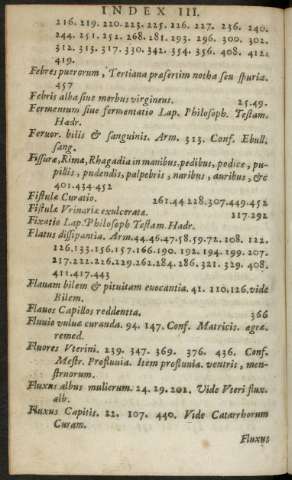 INDEX III.
216. 219. 220. 223. 225. 226. 227. 236. 240.
244. 251. 252. 268. 281. 293. 296. 300. 302.
312. 313. 317. 330. 342. 354. 356. 408. 412.
419.
Febres puerorum, Tertiana præsertim notha seu spuria.
457
Febris alba siue morbus virgineus. 25.49.
Fermentum siue fermentatio Lap. Philosoph. Testam.
Hadr.
Feruor. bilis & sanguinis. Arm. 313. Conf. Ebull.
sang.
Fissuræ, Rima, Rhagadia in manibus, pedibus, podice, pu-
pillis, pudendis, palpebris, naribus, auribus, &c
401.434.452
Fistulæ Curatio. 261.44.228.307.449.452
Fistula Vrinariæ exulcerata. 117.292
Fixatio Lap. Philosoph Testam. Hadr.
Flatus dissipantia. Arm.44.46.47.58.59.72. 108. 122.
126.133.156.157.166.190. 192. 194. 199. 207.
217.221.226.229.262.284.286. 321. 329. 408.
411.417.443
Flauam bilem & pituitam euocantia. 41. 110.126. vide
Bilem.
Flauos Capillos reddentia. 366
Fluuio vuluæ curanda. 94. 147. Conf. Matricis. agræ.
remed.
Fluores Vterini. 239. 347. 369. 376. 436. Conf.
Mestr. Profluuia. Item profluuia. ventris, men-
struorum.
Fluxus albus mulierum. 24. 29. 202. Vide Vteri flux.
alb.
Fluxus Capitis. 22. 107. 440. Vide Catarrhorum
Curam.
Fluxus